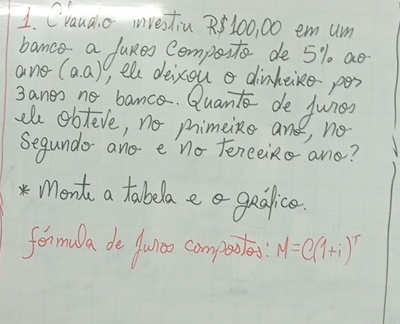 1. Claudio investiu R$100,00 em um
banco a juros composto de 5% ao
ano (a.a), ele deixou o dinheiro por
3 anos no banco. Quanto de juros
ele obteve, no primeiro ano, no
segundo ano e no terceiro ano?
* Monte a tabela e o gráfico.
fórmula de juros compostos: M=C(1+i)ᵀ